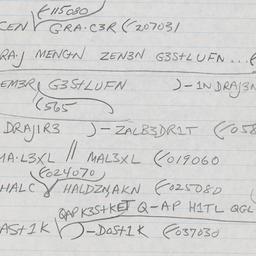 (115080
CEN GRA·C3R (207031
RA·J MENG+N ZEN3N G3S+LUFN...(
EM3R, G3S+LUFN )-1NDRAJ3N
(565
DRAJ1R3 )-ZALB3DR1T (058
MA·L3XL // MAL3XL (019060
(024070)
HALC HALDZN,AKN (025080
QAPK3S+KET Q-AP H1TL QGL
AS+1K )-DOS+1K (037030